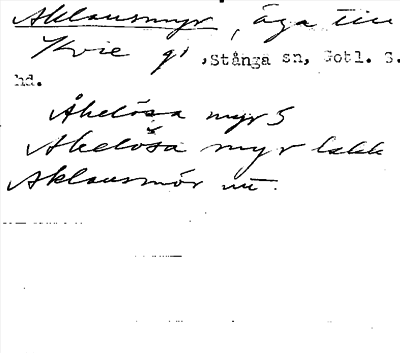 Aklausmyr, äga till
Kvie gd, Stånga sn, Gotl. S.
hd.
Åkelösa myr S
Akelösa myr lakk
Aklausmör uu.